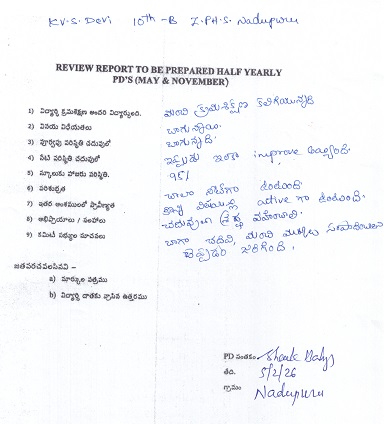 K.V.S. Devi 10th-B Z.P.H.S. Nadupuru
REVIEW REPORT TO BE PREPARED HALF YEARLY
PD'S (MAY & NOVEMBER)
1) విద్యార్థి క్రమశిక్షణ అందరి విద్యార్థులందు. మంచి క్రమశిక్షణ కలిగియున్నది
2) వినయ విధేయతలు బాగున్నాయి.
3) పూర్వపు పరిస్థితి చదువులో బాగున్నది.
4) నేటి పరిస్థితి చదువులో ఇప్పుడు ఇంకా improve అయ్యింది.
5) స్కూలుకు హాజరు పరిస్థితి. 95%
6) పరిశుభ్రత చాలా నీట్‌గా ఉంటుంది
7) ఇతర అంశములలో ప్రావీణ్యత అన్ని విషయాల్లో active గా ఉంటుంది.
8) అభిప్రాయాలు / సలహాలు చదువుపై శ్రద్ధ వహించాలి.
9) కమిటీ సభ్యుల సూచనలు బాగా చదివి, మంచి మార్కులు సంపాదించాలని
చెప్పడం జరిగింది.
జతపరచవలసినవి –
a) మార్కుల పత్రము
b) విద్యార్థి దాతకు వ్రాసిన ఉత్తరము
PD సంతకం
తేది. 5/2/26
గ్రామం Nadupuru